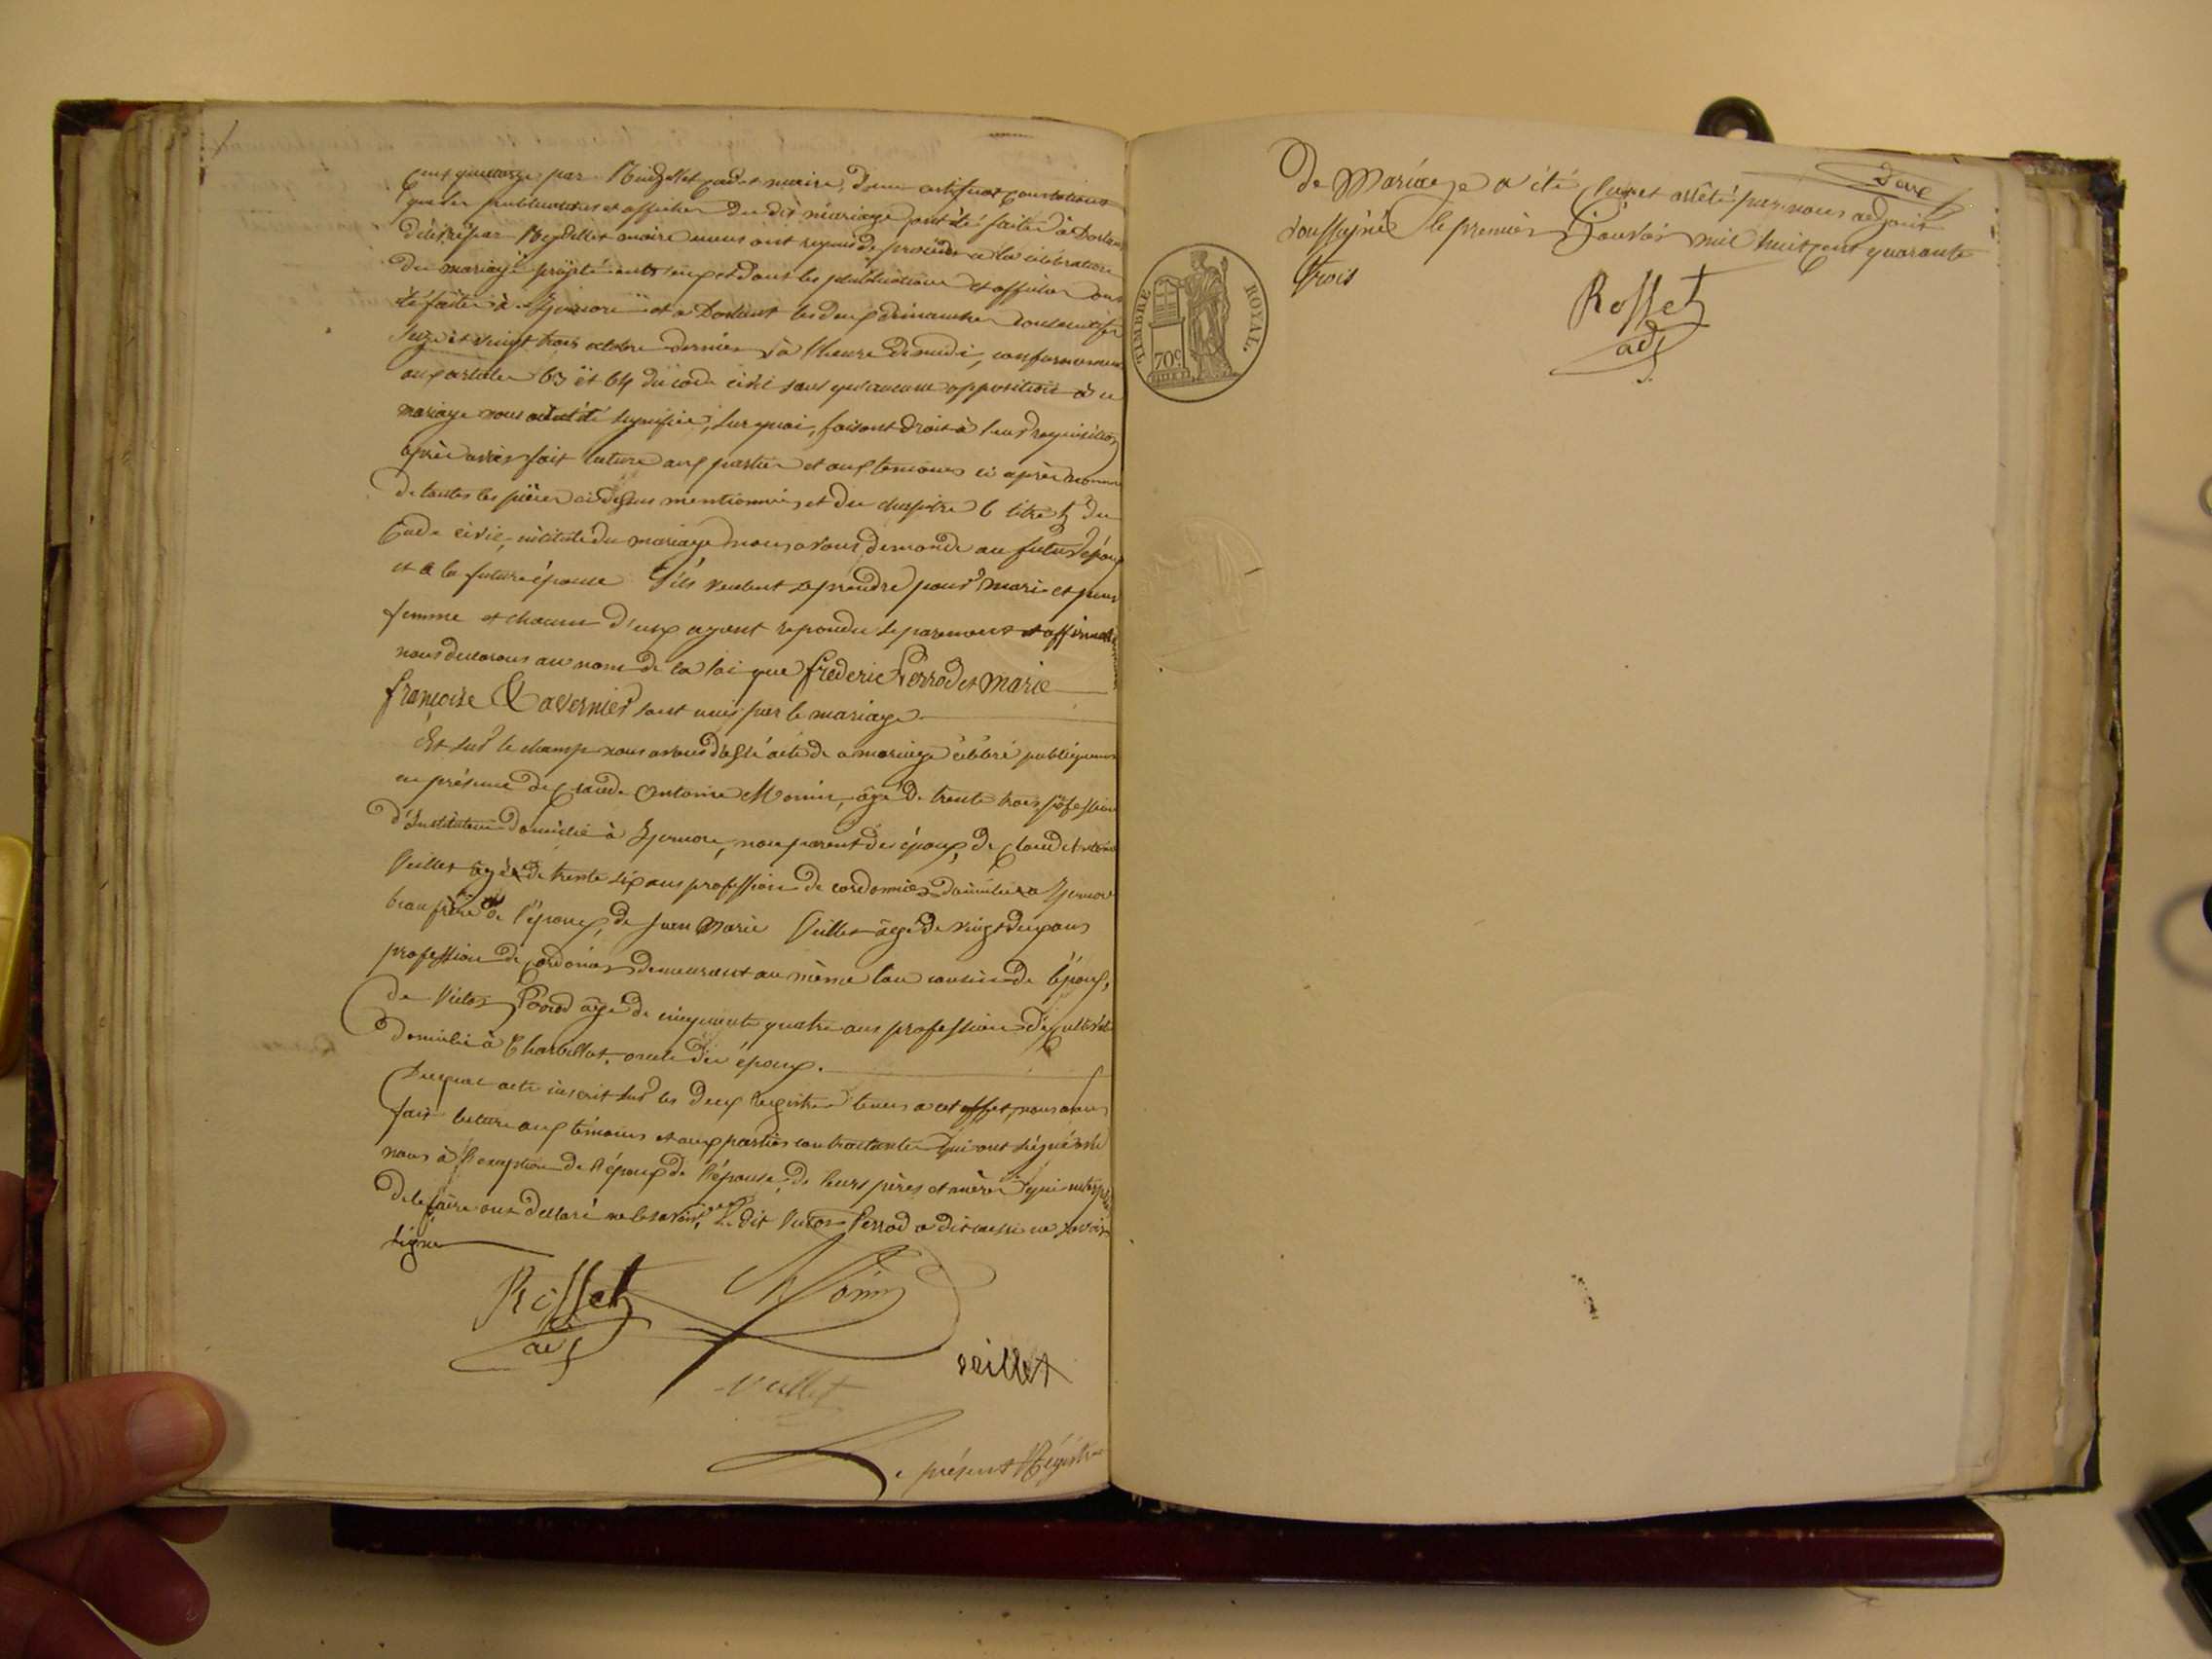 cent quatorze par maire, d'un certificat constatant
que les publications et affiches du dit mariage ont été faites à Dortan
délivré par maire nous ont requis de procéder à la célébration
du mariage projeté entr'eux et dont les publications et affiches ont
été faites à et a Dortant les deux dimanches
seize et vingt trois octobre dernier à l'heure de midi, conformement
aux articles 63 et 64 du code civil sans qu'aucune opposition à ce
mariage nous ait été signifiée, sur quoi, faisant droit à leur requisition
après avoir fait lecture aux parties et aux temoins ci après nommés
de toutes les pièces ci dessus mentionnées et du chapitre 6 titre 5 du
Code civil, intitulé du mariage nous avons demandé au futur époux
et à la future épouse S'ils veulent se prendre pour mari et pour
femme et chacun d'eux ayant repondu separement et affirmativement
nous declarons au nom de la loi que frederic Perrod et Marie
françoise Tavernier sont unis par le mariage.
Et sur le champ nous avons dressé acte de ce mariage célébré publiquement
en présence de Claude Antoine Monin, agé de trente trois profession
d'instituteur domicilié à non parent des époux, de Claude
Veillet agé de trente six ans profession de cordonnier domicilié a
beau frère de l'époux, de Jean Marie Veillet agé de vingt deux ans
profession de cordonier demeurant au même lieu cousin de l'époux,
de Victor Perrod âgé de cinquante quatre ans profession de cultivat
domicilié à Charbillat, oncle de époux.
Duquel acte inscrit sur les deux registres tenus a cet effet, nous avons
fait lecture aux témoins et aux parties contractantes qui ont signé avec
nous à l'exception de l'époux de l'épouse, de leurs pères et mères qui
de le faire ont déclaré ne le savoir, Le dit Victor Perrod a dit aussi ne savoir
signer
Rosset Monin
adj
veillet
Veillet
Le présent Régistre
Deux
De Mariage a été clos et arrêté par nous adjoint
soussigné le premier Janvier mil huit cent quarante
trois
Rosset
adj
TIMBRE ROYAL.
70c